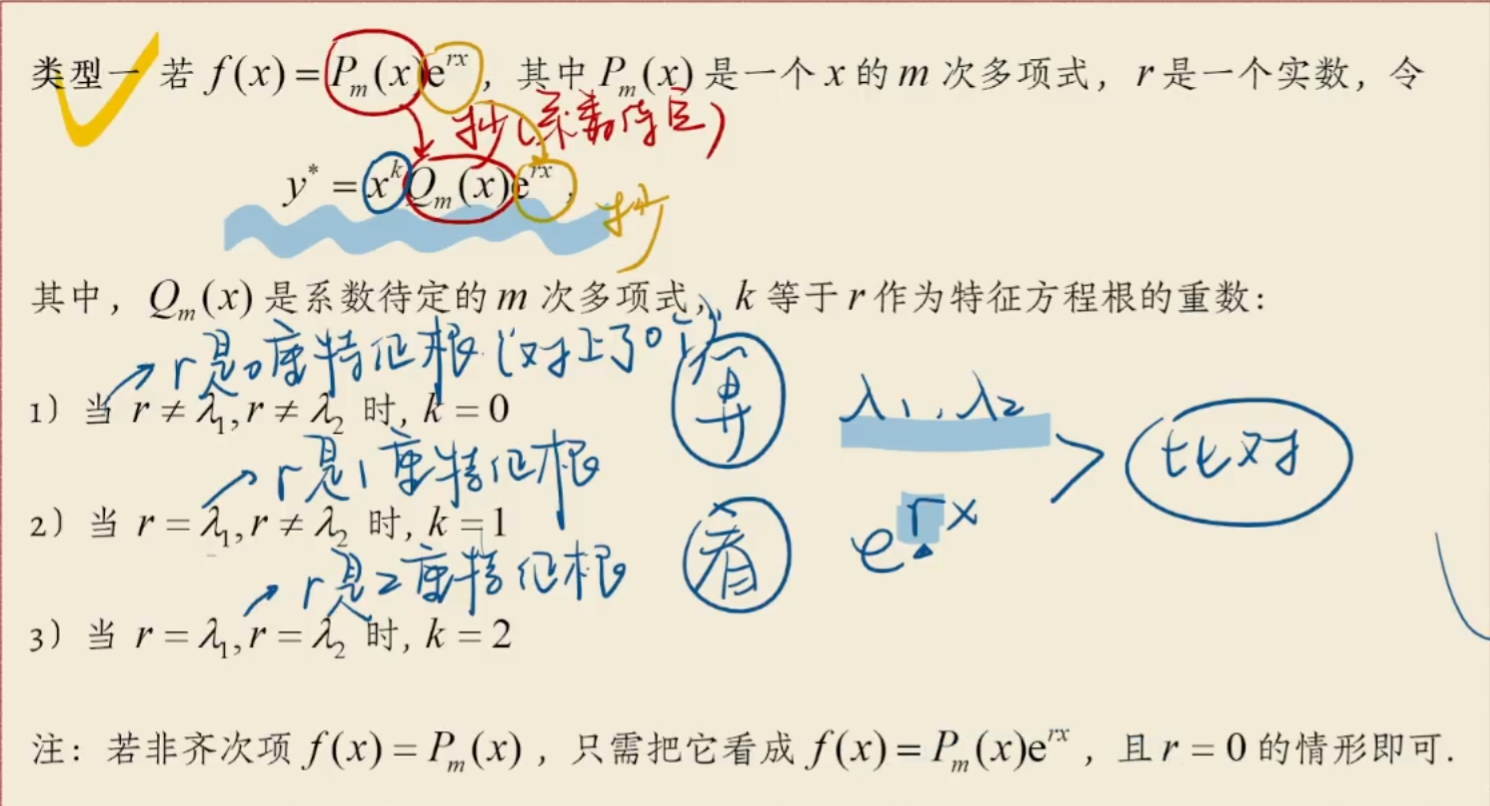 类型一 若 f(x) = P_m(x)e^{rx}, 其中 P_m(x) 是一个 x 的 m 次多项式, r 是一个实数, 令
抄(系数待定)
y^* = x^k Q_m(x)e^{rx},
抄
其中, Q_m(x) 是系数待定的 m 次多项式, k 等于 r 作为特征方程根的重数:
r是0重特征根(对上了0个)
1) 当 r ≠ λ_1, r ≠ λ_2 时, k = 0
算 λ_1, λ_2
比对
r是1重特征根
2) 当 r = λ_1, r ≠ λ_2 时, k = 1
看 e^{rx}
r是2重特征根
3) 当 r = λ_1, r = λ_2 时, k = 2
注: 若非齐次项 f(x) = P_m(x), 只需把它看成 f(x) = P_m(x)e^{rx}, 且 r = 0 的情形即可.